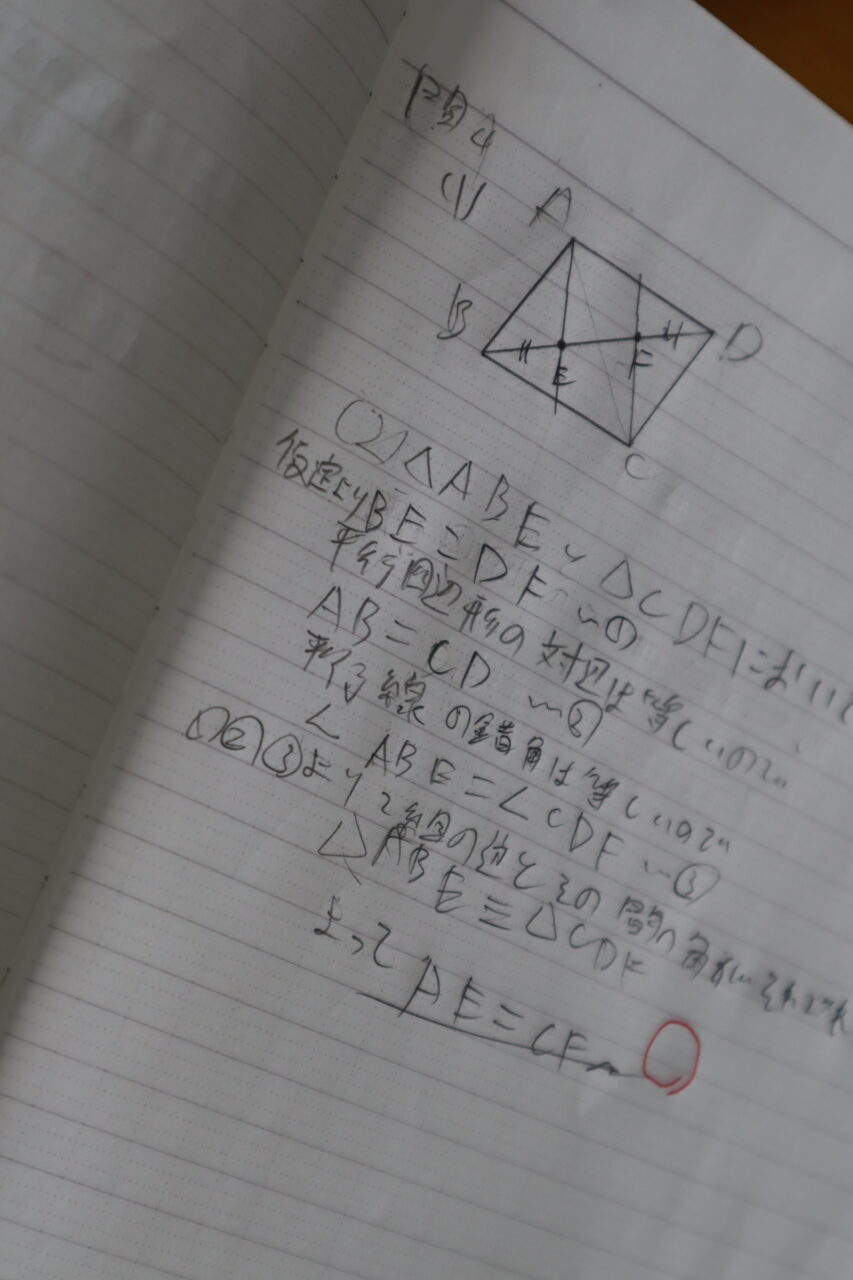 問4
(1)
A
B
D
E
F
C
(2) △ABEと△CDFにおいて
仮定よりBE=DF…①
平行四辺形の対辺は等しいので
AB=CD …②
平行線の錯角は等しいので
∠ABE=∠CDF…③
①②③より2組の辺とその間の角がそれぞれ
△ABE≡△CDF
よって
AE=CF